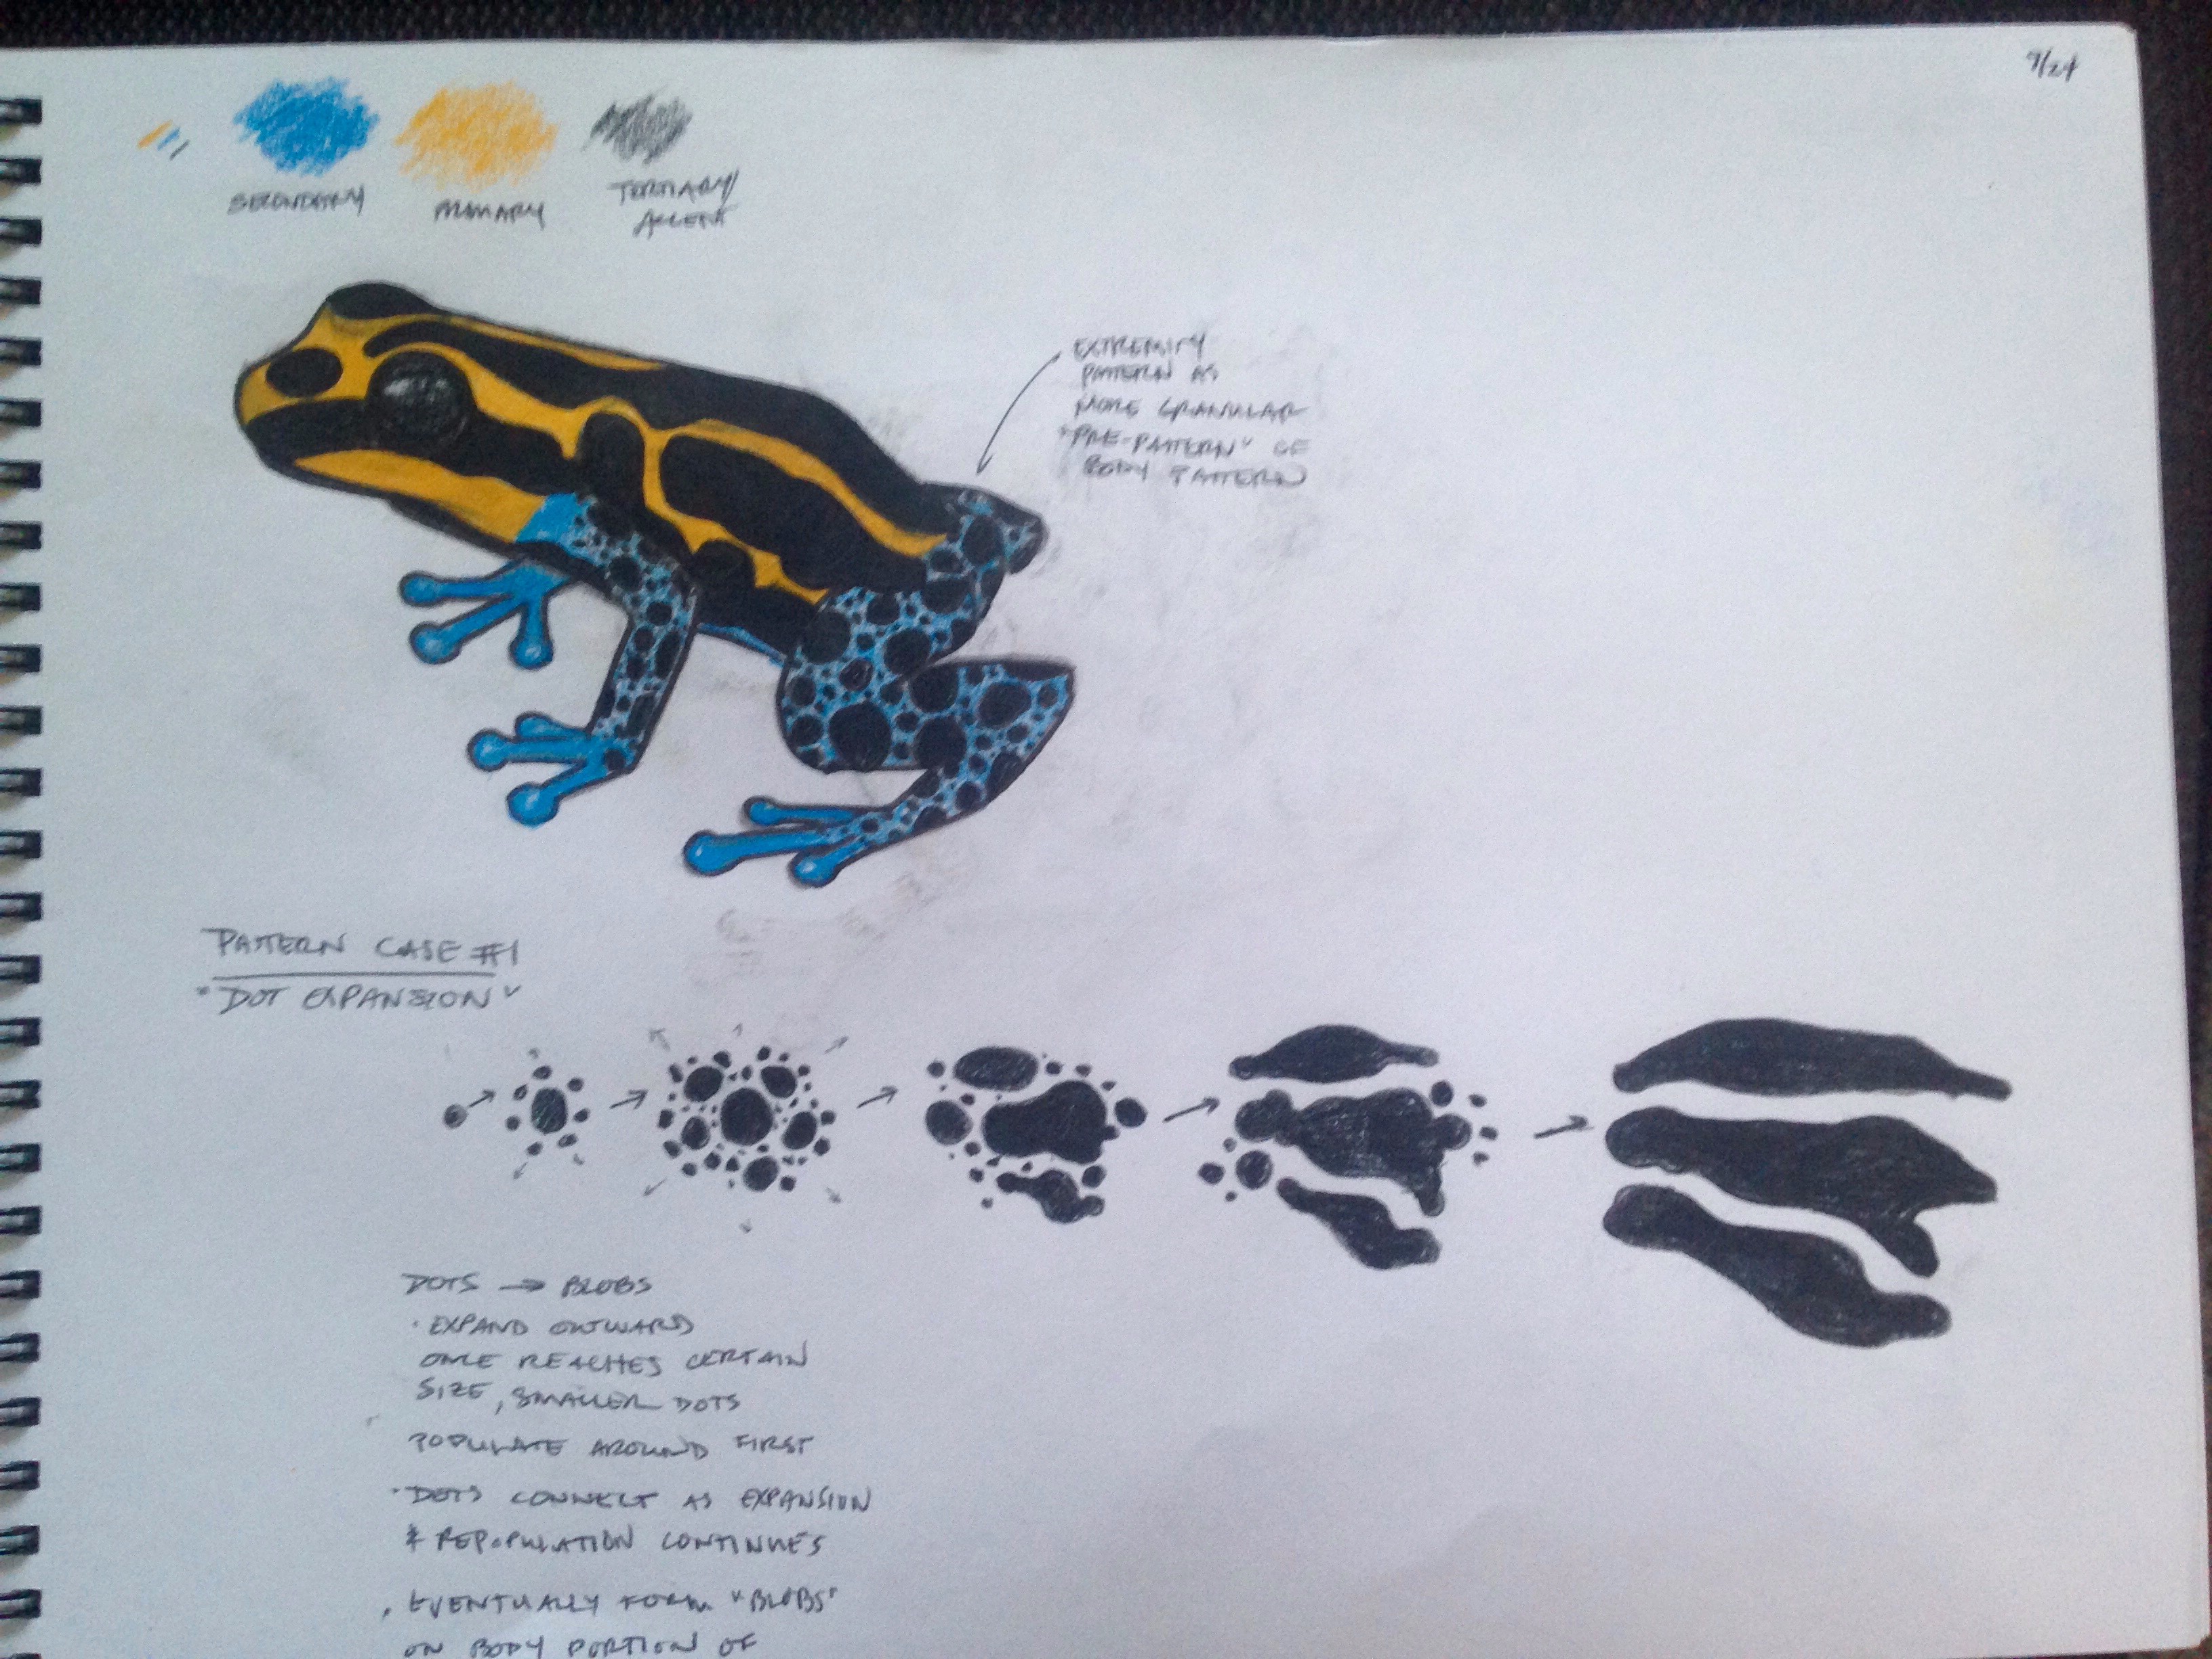 9/24
SECONDARY
PRIMARY
TERTIARY/
ACCENT
EXTREMITY
PATTERN AS
MORE GRANULAR
"PRE-PATTERN" OF
BODY PATTERN
PATTERN CASE #1
"DOT EXPANSION"
DOTS → BLOBS
· EXPAND OUTWARD
ONCE REACHES CERTAIN
SIZE, SMALLER DOTS
POPULATE AROUND FIRST
· DOTS CONNECT AS EXPANSION
& REPOPULATION CONTINUES
· EVENTUALLY FORM "BLOBS"
ON BODY PORTION OF